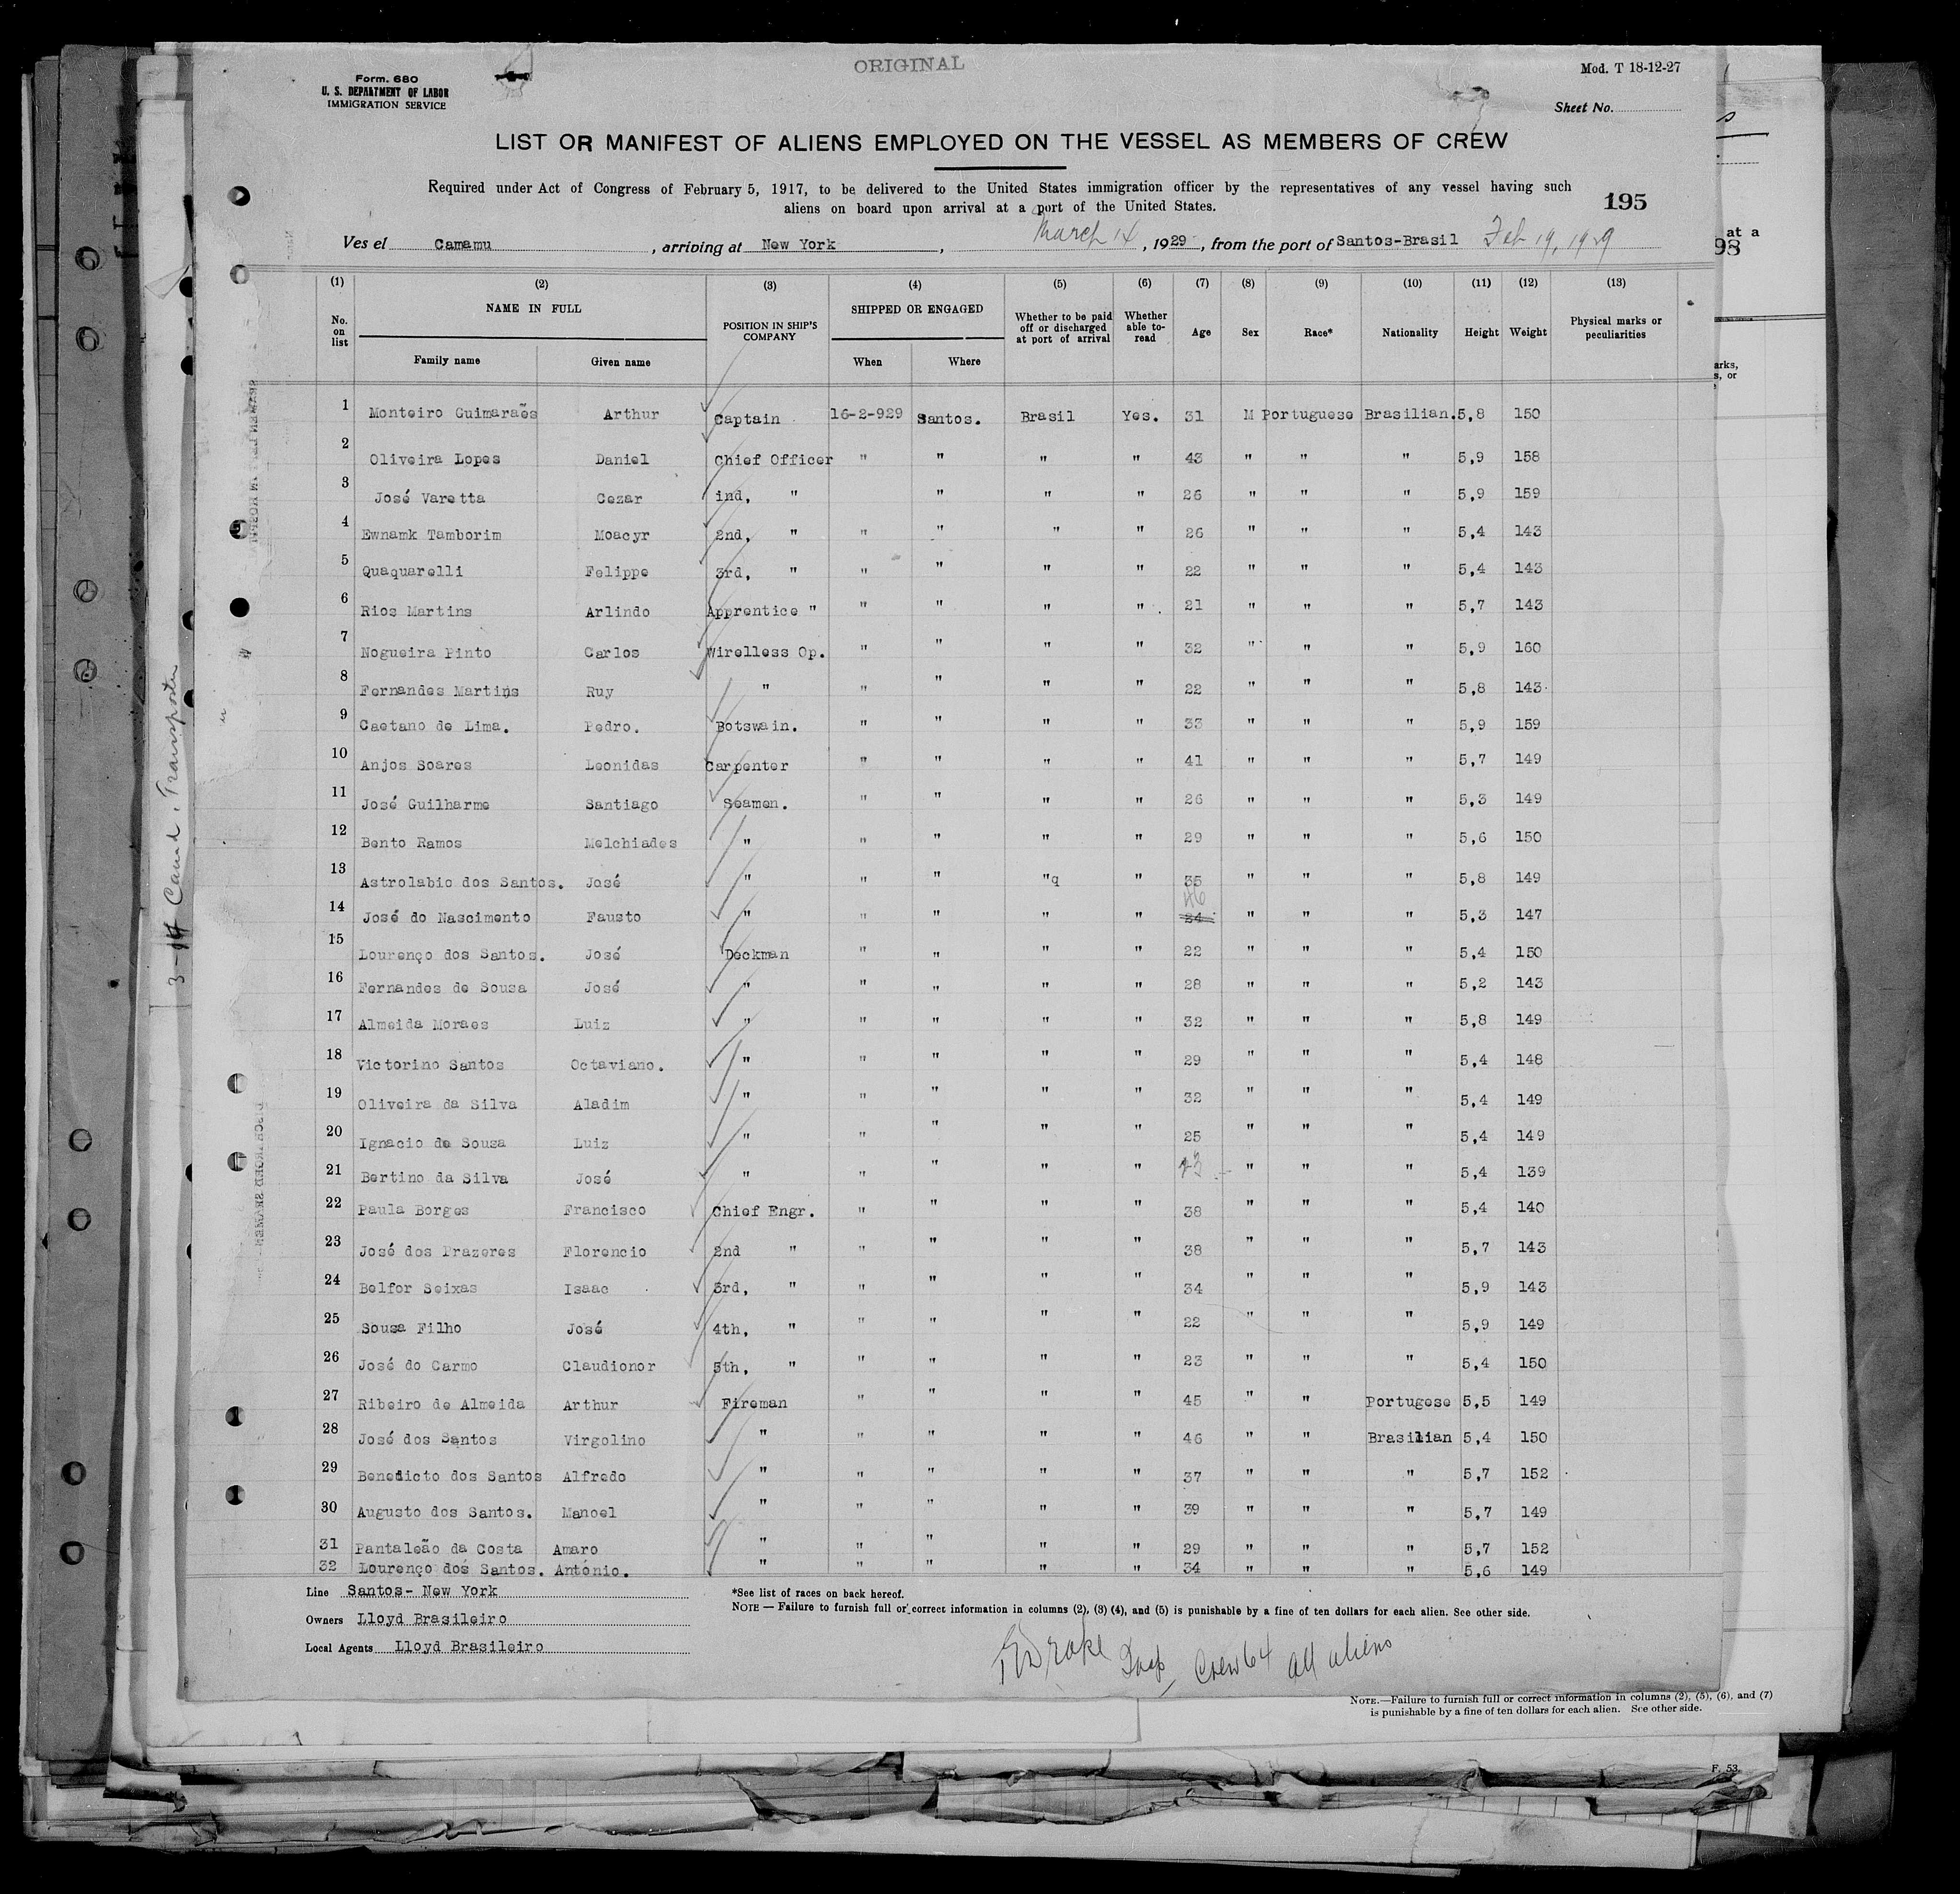 ORIGINAL
Form. 680
U. S. DEPARTMENT OF LABOR
IMMIGRATION SERVICE
Mod. T 18-12-27
Sheet No.
LIST OR MANIFEST OF ALIENS EMPLOYED ON THE VESSEL AS MEMBERS OF CREW
Required under Act of Congress of February 5, 1917, to be delivered to the United States immigration officer by the representatives of any vessel having such
aliens on board upon arrival at a port of the United States.
195
Ves el Camamu, arriving at New York, March 14, 1929, from the port of Santos-Brasil Feb 19, 1929
(1) (2) (3) (4) (5) (6) (7) (8) (9) (10) (11) (12) (13)
No. on list NAME IN FULL Family name Given name POSITION IN SHIP'S COMPANY SHIPPED OR ENGAGED When Where Whether to be paid off or discharged at port of arrival Whether able to read Age Sex Race* Nationality Height Weight Physical marks or peculiarities
1 Monteiro Guimaraẽs Arthur Captain 16-2-929 Santos. Brasil Yes. 31 M Portuguese Brasilian. 5,8 150
2 Oliveira Lopes Daniel Chief Officer " " " " 43 " " " 5,9 158
3 José Varetta Cezar ind, " " " " 26 " " " 5,9 159
4 Ewnamk Tamborim Moacyr 2nd, " " " " " 26 " " " 5,4 143
5 Quaquarelli Felippe 3rd, " " " " " 22 " " " 5,4 143
6 Rios Martins Arlindo Apprentice " " " " " 21 " " " 5,7 143
7 Nogueira Pinto Carlos Wirelless Op. " " " " 32 " " " 5,9 160
8 Fernandes Martins Ruy " " " " " 22 " " " 5,8 143
9 Caetano de Lima. Pedro. Botswain. " " " " 33 " " " 5,9 159
10 Anjos Soares Leonidas Carpenter " " " " 41 " " " 5,7 149
11 José Guilharme Santiago Seamen. " " " " 26 " " " 5,3 149
12 Bento Ramos Melchiades " " " " " 29 " " " 5,6 150
13 Astrolabio dos Santos. José " " " "q " 35 " " " 5,8 149
14 José do Nascimento Fausto " " " " " 46 34 " " " 5,3 147
15 Lourenço dos Santos. José Deckman " " " " 22 " " " 5,4 150
16 Fernandes de Sousa José " " " " " 28 " " " 5,2 143
17 Almeida Moraes Luiz " " " " " 32 " " " 5,8 149
18 Victorino Santos Octaviano. " " " " " 29 " " " 5,4 148
19 Oliveira da Silva Aladim " " " " " 32 " " " 5,4 149
20 Ignacio de Sousa Luiz " " " " " 25 " " " 5,4 149
21 Bertino da Silva José " " " " " " " " 5,4 139
22 Paula Borges Francisco Chief Engr. " " " " 38 " " " 5,4 140
23 José dos Prazeres Florencio 2nd " " " " " 38 " " " 5,7 143
24 Belfor Seixas Isaac 3rd, " " " " " 34 " " " 5,9 143
25 Sousa Filho José 4th, " " " " " 22 " " " 5,9 149
26 José do Carmo Claudionor 5th, " " " " " 23 " " " 5,4 150
27 Ribeiro de Almeida Arthur Fireman " " " " 45 " " Portugese 5,5 149
28 José dos Santos Virgolino " " " " " 46 " " Brasilian 5,4 150
29 Benedicto dos Santos Alfredo " " " " " 37 " " " 5,7 152
30 Augusto dos Santos. Manoel " " " " " 39 " " " 5,7 149
31 Pantaleão da Costa Amaro " " " " " 29 " " " 5,7 152
32 Lourenço dos Santos. António. " " " " " 34 " " " 5,6 149
Line Santos- New York
Owners Lloyd Brasileiro
Local Agents Lloyd Brasileiro
*See list of races on back hereof.
NOTE — Failure to furnish full or correct information in columns (2), (3) (4), and (5) is punishable by a fine of ten dollars for each alien. See other side.
Drake Insp, Crew 64 all aliens
NOTE.—Failure to furnish full or correct information in columns (2), (5), (6), and (7)
is punishable by a fine of ten dollars for each alien. See other side.
F. 53
at a
98
arks,
s, or